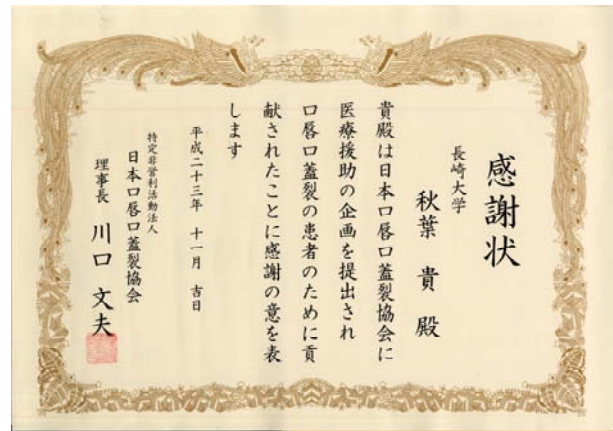 感謝状
長崎大学
秋葉 貴 殿
貴殿は日本口唇口蓋裂協会に
医療援助の企画を提出され
口唇口蓋裂の患者のために貢
献されたことに感謝の意を表
します
平成二十三年 十一月 吉日
特定非営利活動法人
日本口唇口蓋裂協会
理事長 川口 文夫